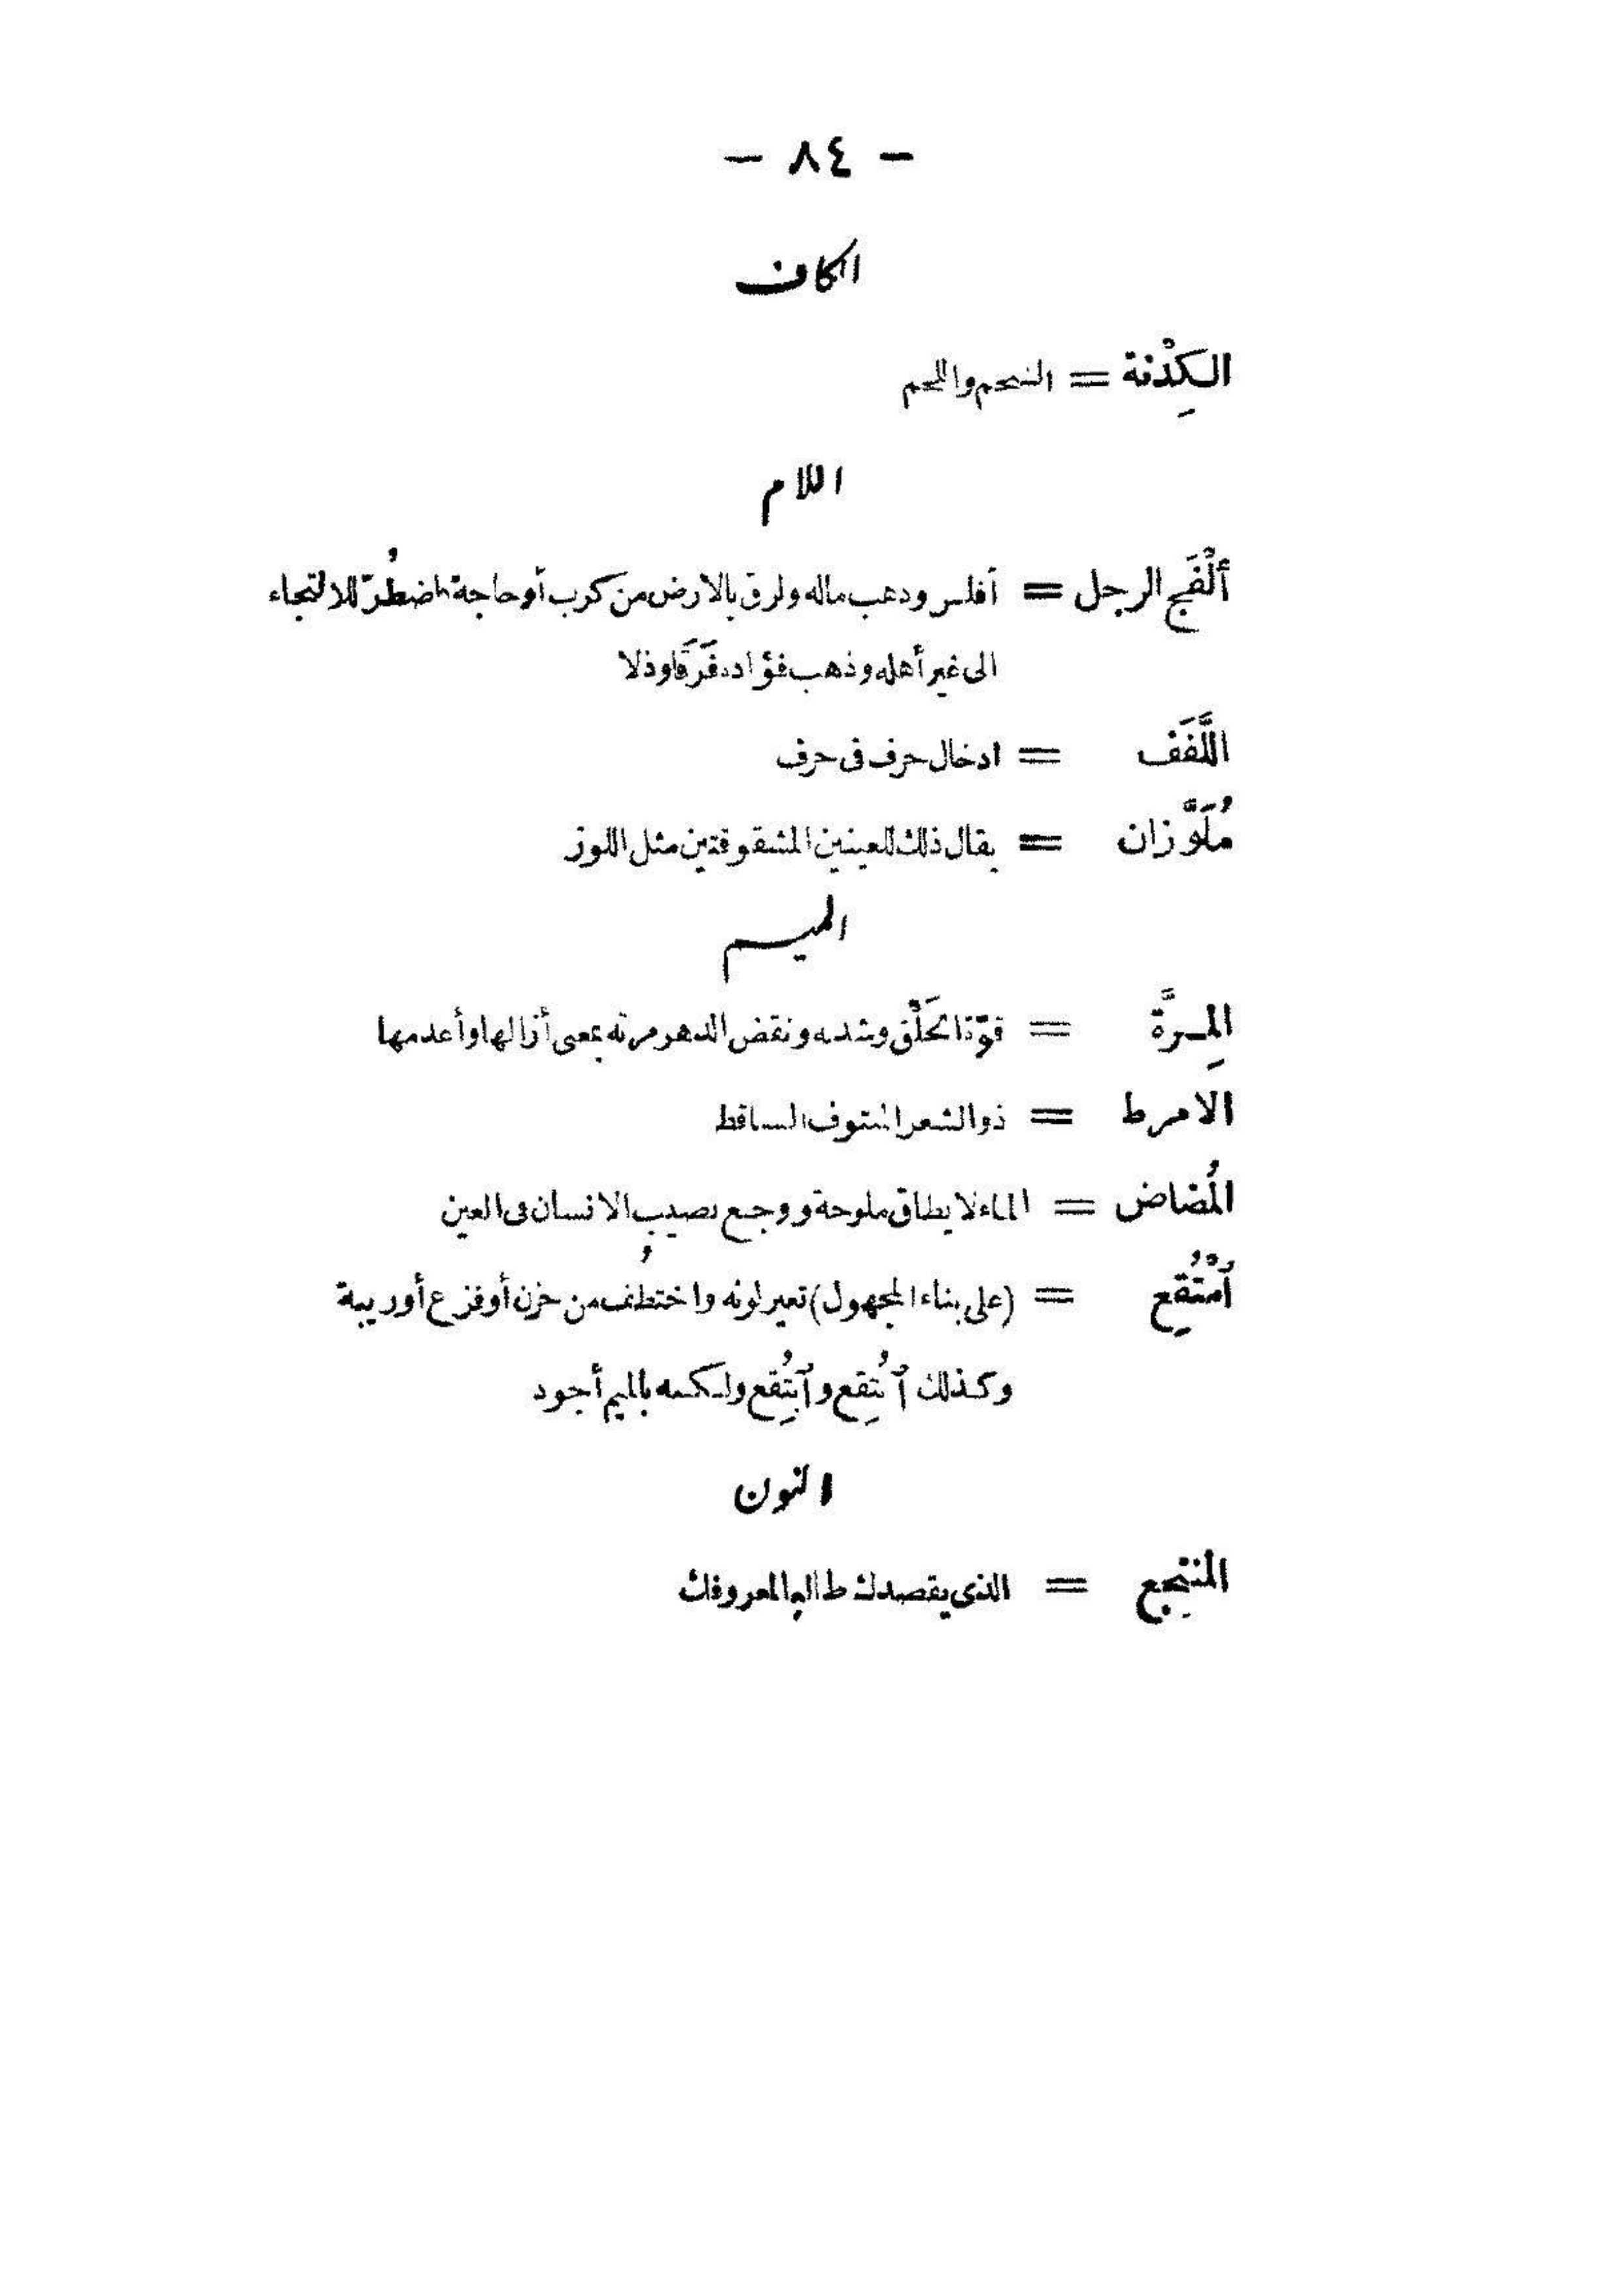 — ٨٤ —
الكاف
الكِدْنة = الشحم واللحم
اللام
أَلْفَج الرجل = أفلس وذهب ماله ولزق بالارض من كرب أو حاجة فاضطُرّ للالتجاء
الى غير أهله وذهب فؤاده فَرَقا وذلا
اللَّفَف = ادخال حرف فى حرف
مُلَوَّزان = يقال ذلك للعينين المشقوقتين مثل اللوز
الميم
المِرَّة = قوّة الخَلْق وشدته ونقض الدهر مرته بمعنى أزالها وأعدمها
الامرط = ذو الشعر المنتوف الساقط
المُضاض = الماء لا يطاق ملوحة ووجع يصيب الانسان فى العين
ٱمْتُقِع = (على بناء المجهول) تغير لونه واختُطف من حزن أو فزع أو ريبة
وكذلك ٱنْتُقِع وٱبْتُقِع ولكنه بالميم أجود
النون
المنتجِع = الذى يقصدك طالبا لمعروفك